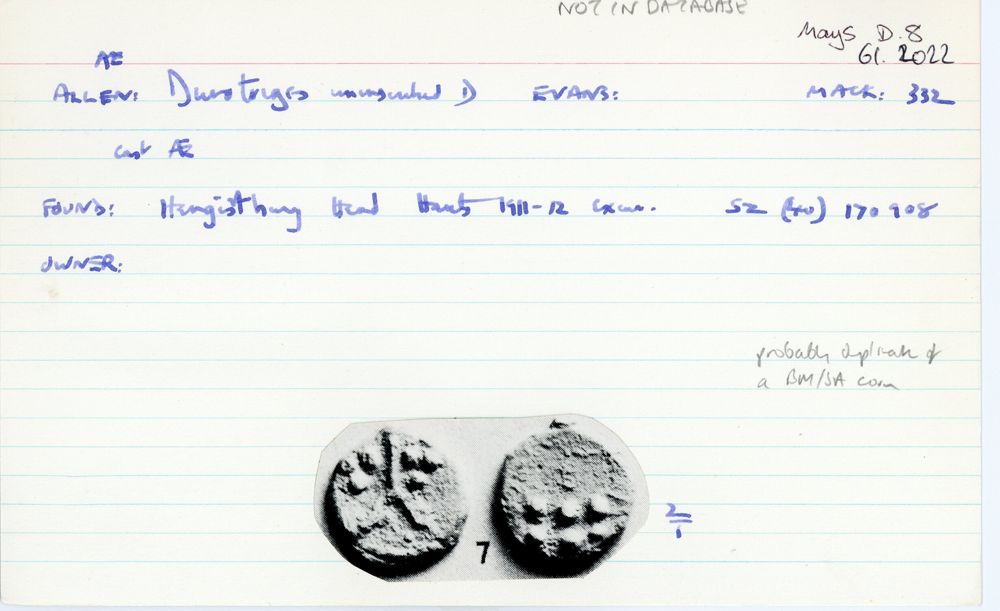 NOT IN DATABASE
Mays D.8
Gl. 2022
Æ
ALLEN: Durotriges uninscribed D EVANS: MACK: 332
cast Æ
FOUND: Hengistbury Head Hants 1911-12 excav. SZ (40) 170908
OWNER:
probably duplicate of
a BM/SA coin
7
2/1